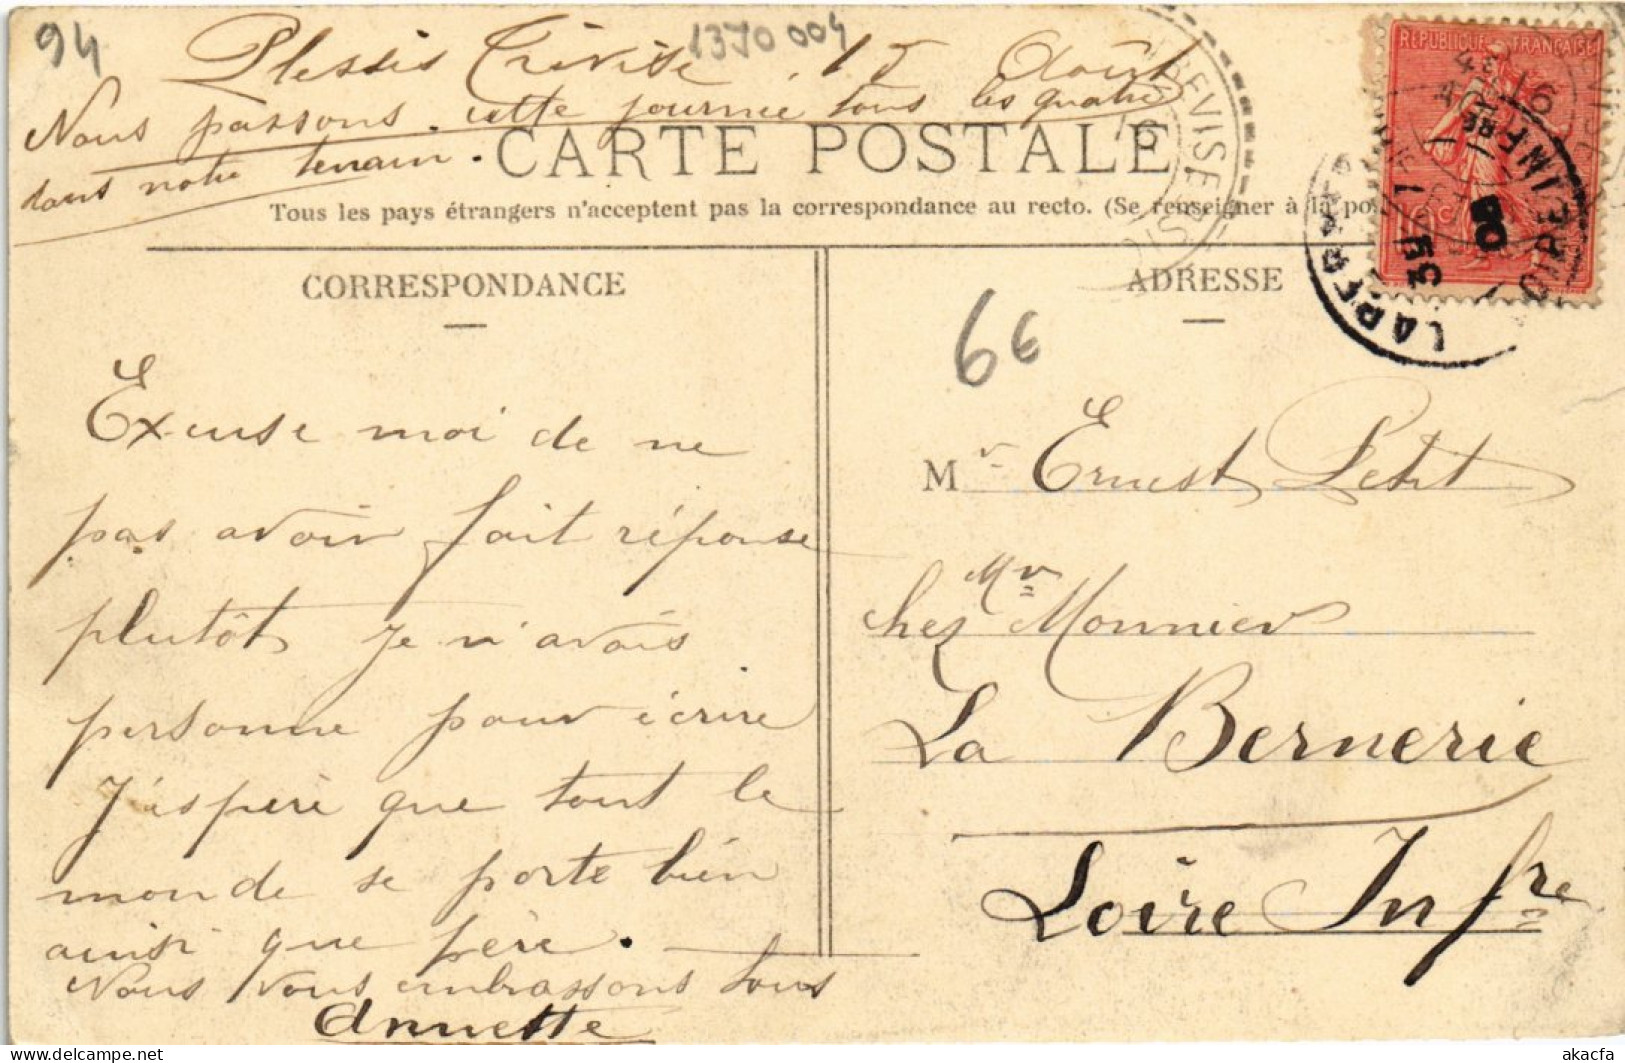 94
1370004
Plessis Trévise. 15 Août
Nous passons cette journée tous les quatre
dans notre terrain.
CARTE POSTALE
Tous les pays étrangers n'acceptent pas la correspondance au recto. (Se renseigner à la po
CORRESPONDANCE
ADRESSE
REPUBLIQUE FRANÇAISE
6€
Excuse moi de ne
pas avoir fait réponse
plutôt je n'avais
personne pour écrire
J'espère que tout le
monde se porte bien
ainsi que père.
Nous vous embrassons tous
Annette
Mr Ernest Petit
chez Mr Monnier
La Bernerie
Loire Infre
delcampe.net
akacfa